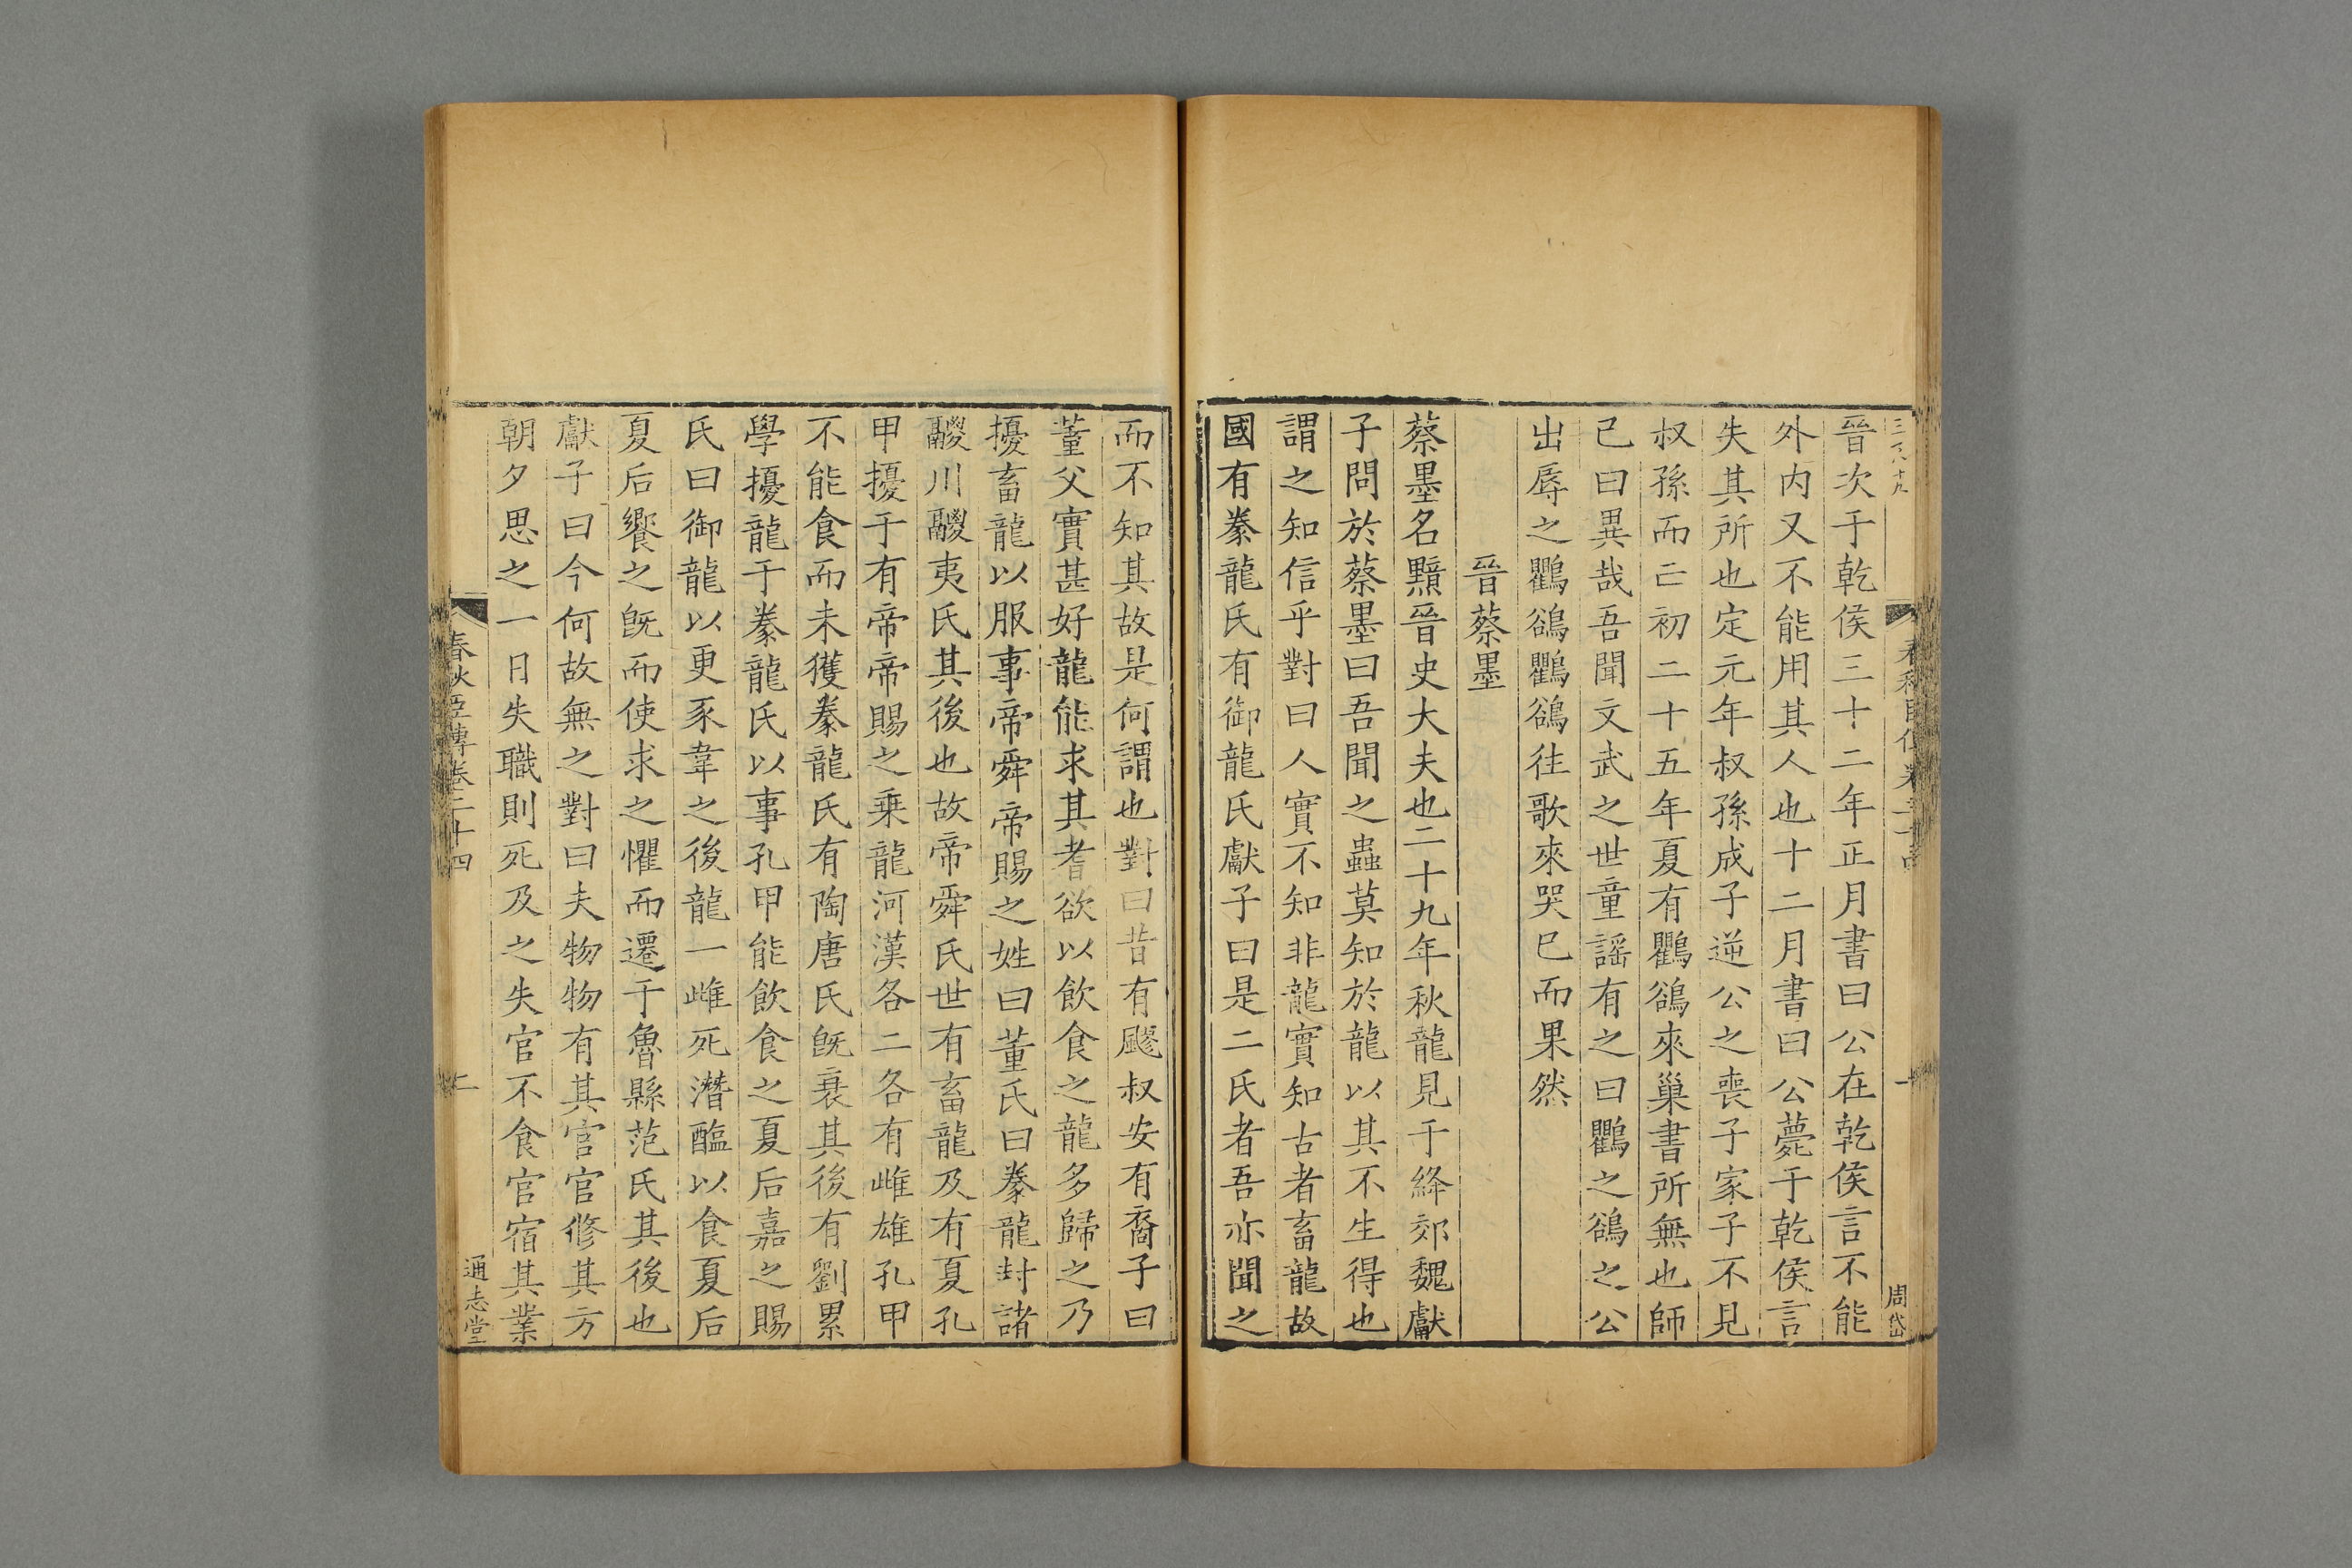 晉次于乾侯三十二年正月書曰公在乾侯言不能
外内又不能用其人也十二月書曰公薨于乾侯言
失其所也定元年叔孫成子逆公之喪子家子不見
叔孫而亡初二十五年夏有鸜鵒來巢書所無也師
已曰異哉吾聞文武之世童謡有之曰鸜之鵒之公
出辱之鸜鵒鸜鵒往歌來哭已而果然
晉蔡墨
蔡墨名黶晉史大夫也二十九年秋龍見于絳郊魏獻
子問於蔡墨曰吾聞之蟲莫知於龍以其不生得也
謂之知信乎對曰人實不知非龍實知古者畜龍故
國有豢龍氏有御龍氏獻子曰是二氏者吾亦聞之
周岱
而不知其故是何謂也對曰昔有飂叔安有裔子曰
董父實甚好龍能求其耆欲以飲食之龍多歸之乃
擾畜龍以服事帝舜帝賜之姓曰董氏曰豢龍封諸
鬷川鬷夷氏其後也故帝舜氏世有畜龍及有夏孔
甲擾于有帝帝賜之乗龍河漢各二各有雌雄孔甲
不能食而未獲豢龍氏有陶唐氏旣衰其後有劉累
學擾龍于豢龍氏以事孔甲能飲食之夏后嘉之賜
氏曰御龍以更豕韋之後龍一雌死潛醢以食夏后
夏后饗之旣而使求之懼而遷于魯縣范氏其後也
獻子曰今何故無之對曰夫物物有其官官修其方
朝夕思之一日失職則死及之失官不食官宿其業
春秋臣傳卷二十四
二
通志堂